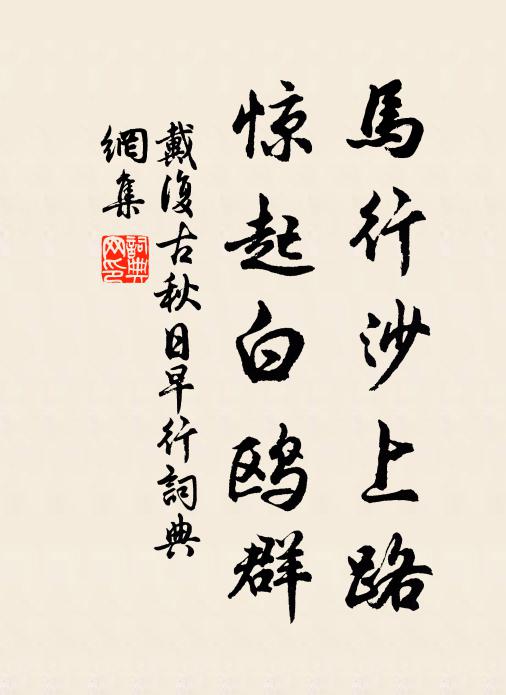 馬行沙上路
惊起白鸥群
戴復古秋日早行詞典
網集
詞典
网印